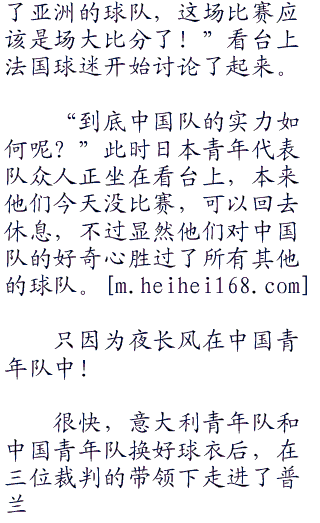 了亚洲的球队，这场比赛应
该是场大比分了！”看台上
法国球迷开始讨论了起来。
“到底中国队的实力如
何呢？”此时日本青年代表
队众人正坐在看台上，本来
他们今天没比赛，可以回去
休息，不过显然他们对中国
队的好奇心胜过了所有其他
的球队。[m.heihei168.com]
只因为夜长风在中国青
年队中！
很快，意大利青年队和
中国青年队换好球衣后，在
三位裁判的带领下走进了普
兰